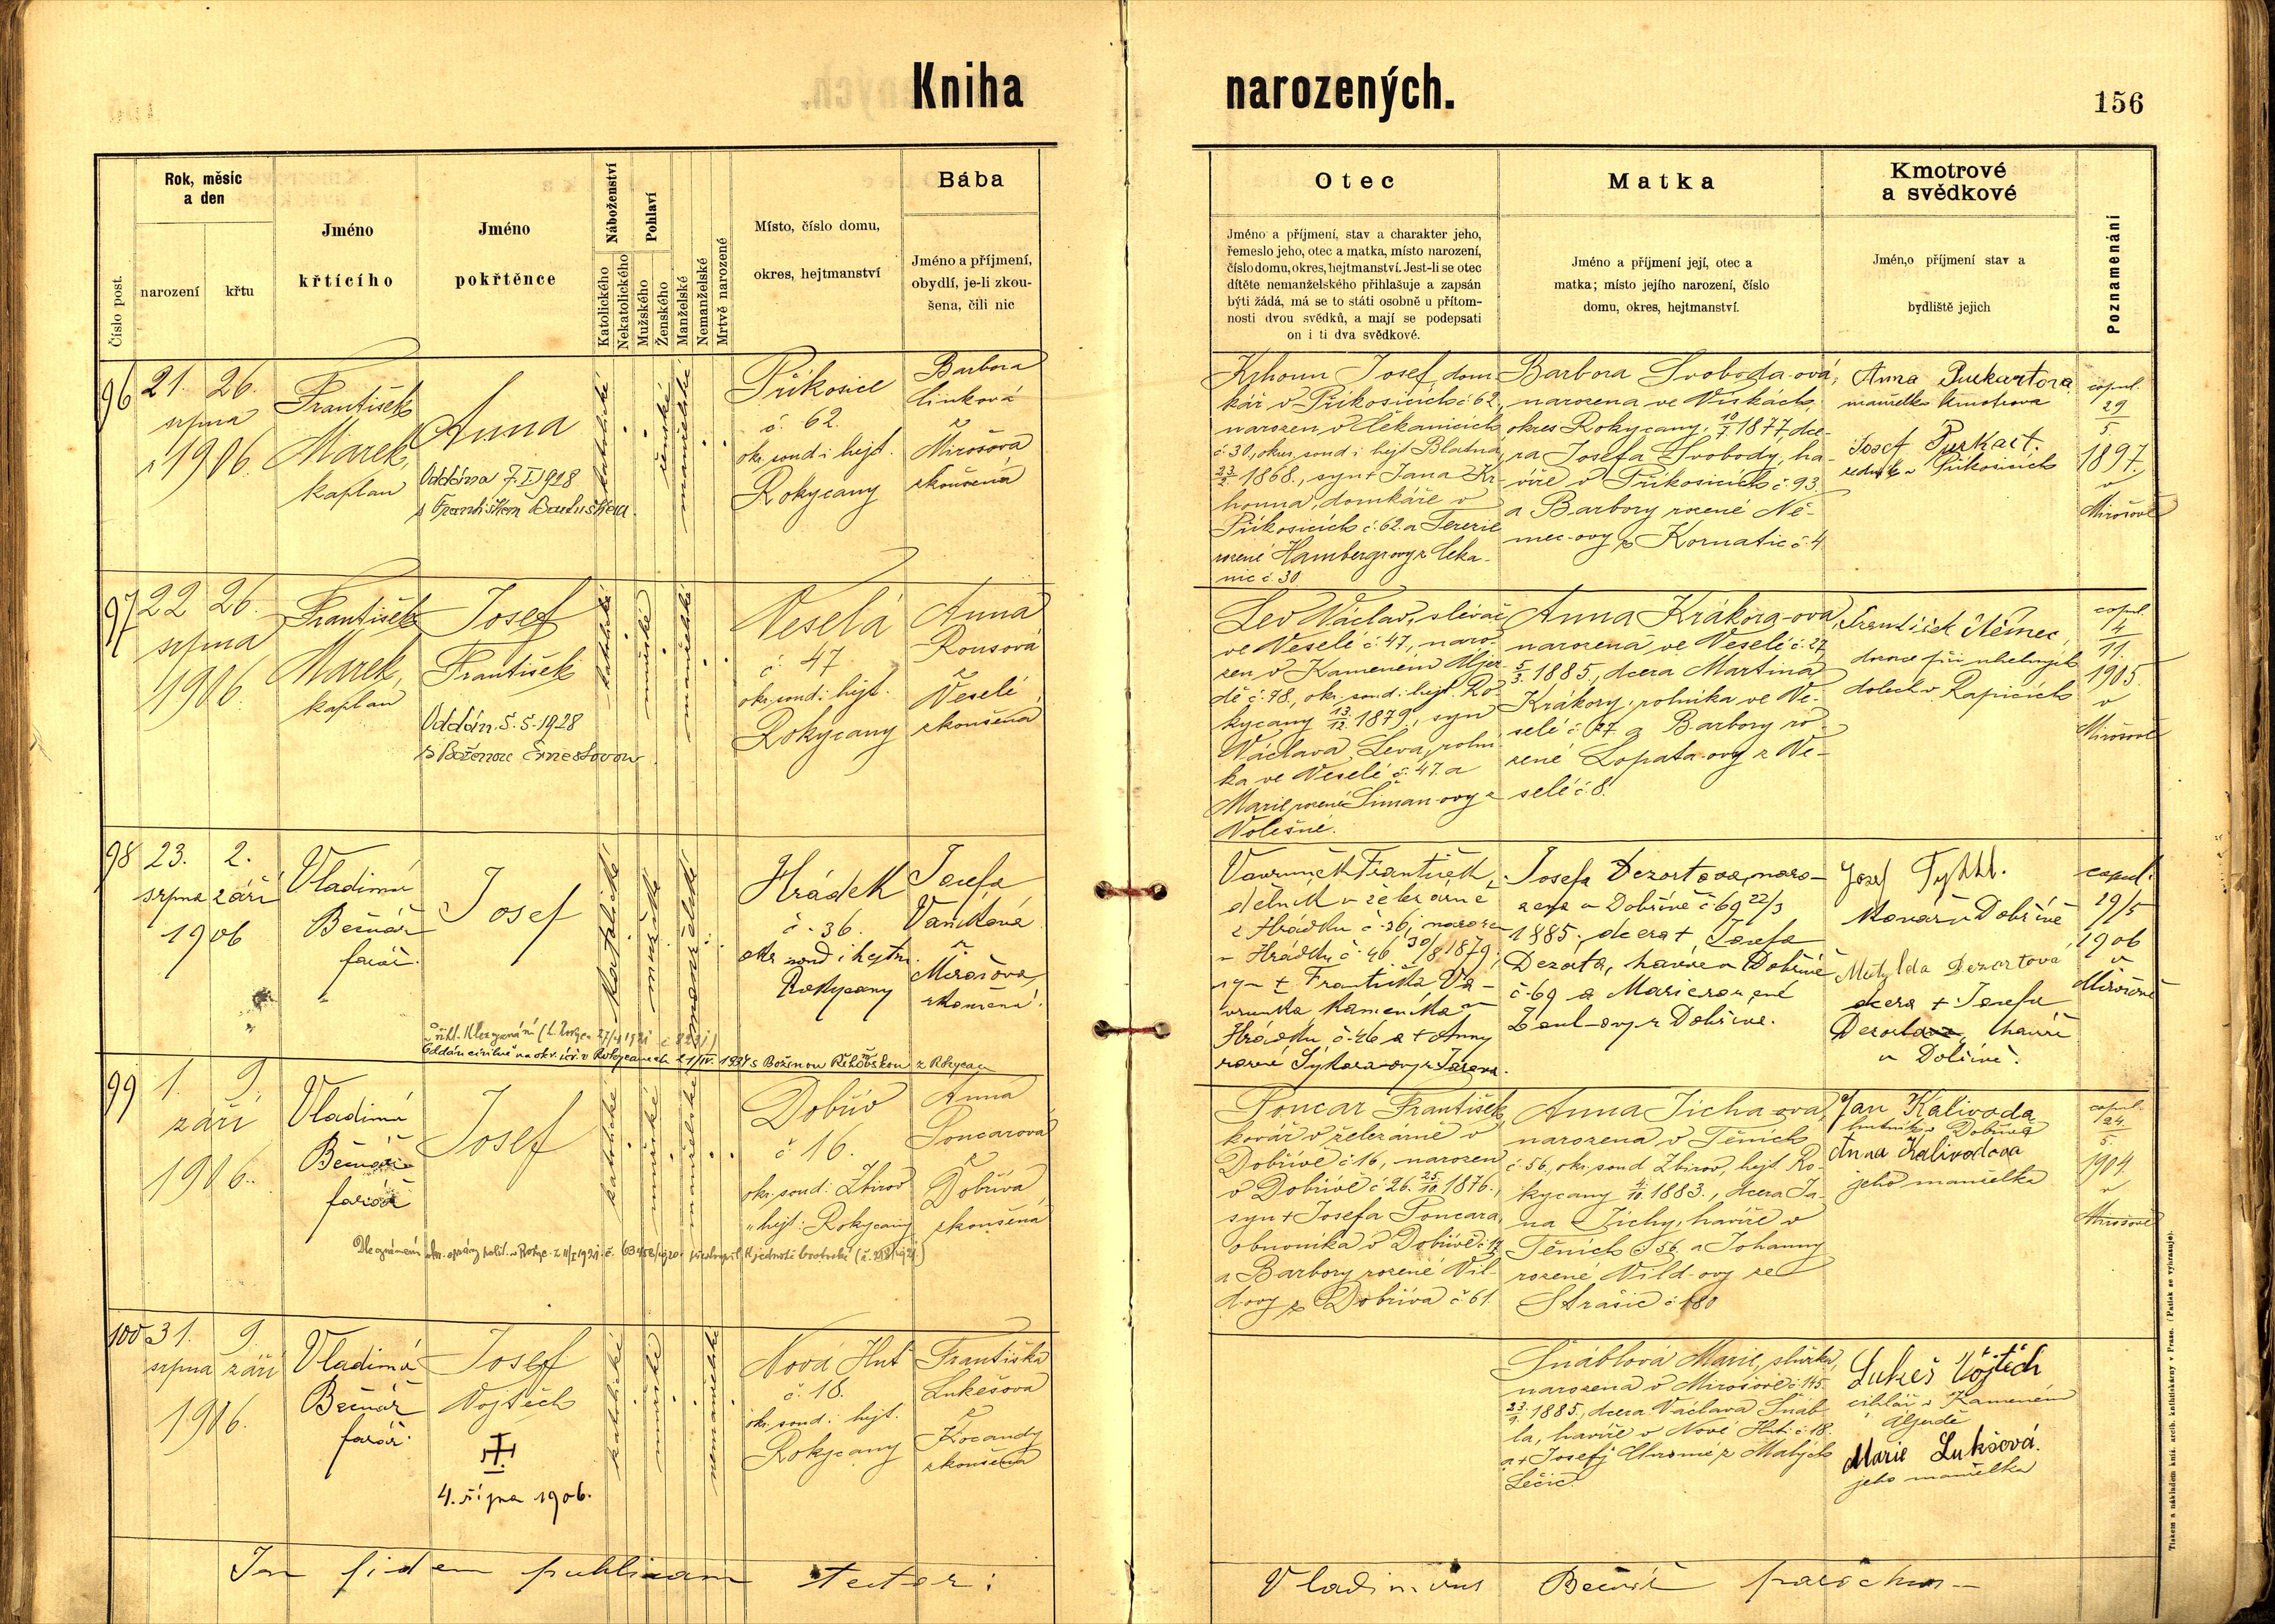 Kniha narozených.
156
Číslo post.
Rok, měsíc
a den
narození
křtu
Jméno
křtícího
Jméno
pokřtěnce
Náboženství
Katolického
Nekatolického
Pohlaví
Mužského
Ženského
Manželské
Nemanželské
Mrtvě narozené
Místo, číslo domu,
okres, hejtmanství
Bába
Jméno a příjmení,
obydlí, je-li zkou-
šena, čili nic
Otec
Jméno a příjmení, stav a charakter jeho,
řemeslo jeho, otec a matka, místo narození,
číslo domu, okres, hejtmanství. Jest-li se otec
dítěte nemanželského přihlašuje a zapsán
býti žádá, má se to státi osobně u přítom-
nosti dvou svědků, a mají se podepsati
on i ti dva svědkové.
Matka
Jméno a příjmení její, otec a
matka; místo jejího narození, číslo
domu, okres, hejtmanství.
Kmotrové
a svědkové
Jmén,o příjmení stav a
bydliště jejich
Poznamenání
96
21. 26.
srpna
1906.
František
Marek,
kaplan
Anna
Oddána 7.I.1928
s Františkem
katolické
ženské
manželské
Příkosice
č. 62.
okr. soud i hejt.
Rokycany
Barbora
Linková
z
Mirošova
zkoušená
Krhoun Josef, dom-
kář v Příkosicích č. 62.,
narozen v Čekanicích
č. 30., okres, soud i hejt. Blatná,
23/2. 1868., syn + Jana Kr-
houna, domkáře v
Příkosicích č. 62. a Terezie
rozené Hambergrovy z Čeka-
nic č. 30.
Barbora Svoboda-ová,
narozena ve Vískách,
okres Rokycany, 10/7. 1877., dce-
ra Josefa Svobody, ha-
víře v Příkosicích č. 93.
a Barbory rozené Ně-
mec-ovy z Kornatic č. 4.
Anna Purkartova
manželka kmotrova
Josef Purkart,
v Příkosicích
copul.
29/5.
1897.
v
Mirošově
97
22 26.
srpna
1906.
František
Marek,
kaplan
Josef
František
Oddán. 5.5.1928
s Boženou Ernestovou
katolické
mužské
manželské
Veselá
č. 47
okr. soud i hejt.
Rokycany
Anna
Rousová
z
Veselé
zkoušená
Lev Václav, slévač
ve Veselé č. 47., naro-
zen v Kameném Újez-
dě č. 98., okr. soud i hejt. Ro-
kycany 13/12. 1879., syn
Václava Leva, rolní-
ka ve Veselé č. 47. a
Marie rozené Šiman-ovy z
Volešné.
Anna Krákora-ova,
narozená ve Veselé č. 27,
5/3. 1885., dcera Martina
Krákory, rolníka ve Ve-
selé č. 27. a Barbory ro-
zené Lopata-ovy z Ve-
selé č. 8.
František Němec,
při uhelných
dolech v Rapicích
copul.
4/11.
1905.
v
Mirošově
98
23. 2.
srpna září
1906
Vladimír
Bečvář
farář.
Josef
Oddán civilně na okr. úř. v Rokycanech 21/IV. 1934 s Boženou Řehořskou z Rokycan
katolické
mužské
manželské
Hrádek
č. 36.
okr. soud i hejtm.
Rokycany
Josefa
Vaníková
z
Mirošova,
zkoušená.
Vavruněk František,
dělník v železárně
z Hrádku č. 36; narozen
v Hrádku č. 46 30/8 1879;
syn + Františka Va-
vruňka kameníka v
Hrádku, č. 46 a + Anny
rozené Sýkora-ovy z
Josefa Dezortova, naro-
zena v Dobřívě č. 69 22/3
1885. dcera + Josefa
Dezorta, havíře v Dobřívě
č. 69 a Marie rozené
z Dobříva.
Josef
kovář v Dobřívě
Matylda Dezortova
dcera + Josefa
Dezorta, havíře
v Dobřívě.
copul.
19/5
1906
v
Mirošově
99
1. 9.
září
1906.
Vladimír
Bečvář
farář
Josef
katolické
mužské
manželské
Dobřív
č. 16.
okr. soud: Zbirov
hejt: Rokycany
Anna
Poncarová
z
Dobříva
zkoušená
Poncar František,
kovář v železárně v
Dobřívě č. 16, narozen
v Dobřívě č. 26. 25/10. 1876.,
syn + Josefa Poncara,
obuvníka v Dobřívě č. 19
a Barbory rozené Vil-
d-ovy z Dobříva č. 61.
Anna Jícha-ová,
narozena v Těních
č. 56., okr. soud Zbirov, hejt. Ro-
kycany 4/10. 1883., dcera Ja-
na Jíchy, havíře v
Těních č. 56. a Johanny
rozené Vild-ovy ze
Strašic č. 180
Jan Kalivoda
hutník v Dobřívě
Anna Kalivodova
jeho manželka
copul.
24/5.
1904.
v
Mirošově
100
31. 9.
srpna září
1906.
Vladimír
Bečvář
farář.
Josef
Vojtěch
4. října 1906.
katolické
mužské
nemanželské
Nová Huť
č. 18.
okr. soud i hejt.
Rokycany
Františka
Lukešova
z
Kocandy
zkoušená
Šnáblová Marie, služka,
narozena v Mirošově č. 145.
23/9. 1885., dcera Václava Šnáb-
la, havíře v Nové Huti č. 18.
a + Josefy Chromé z Malých
Lečic.
Lukeš Vojtěch
cihlář v Kameném
Újezdě
Marie Lukšová.
jeho manželka
In fidem publicam testor:
Vladimirus Bečvář parochus
Tiskem a nákladem kníž. arcib. knihtiskárny v Praze. (Patisk se vyhrazuje).